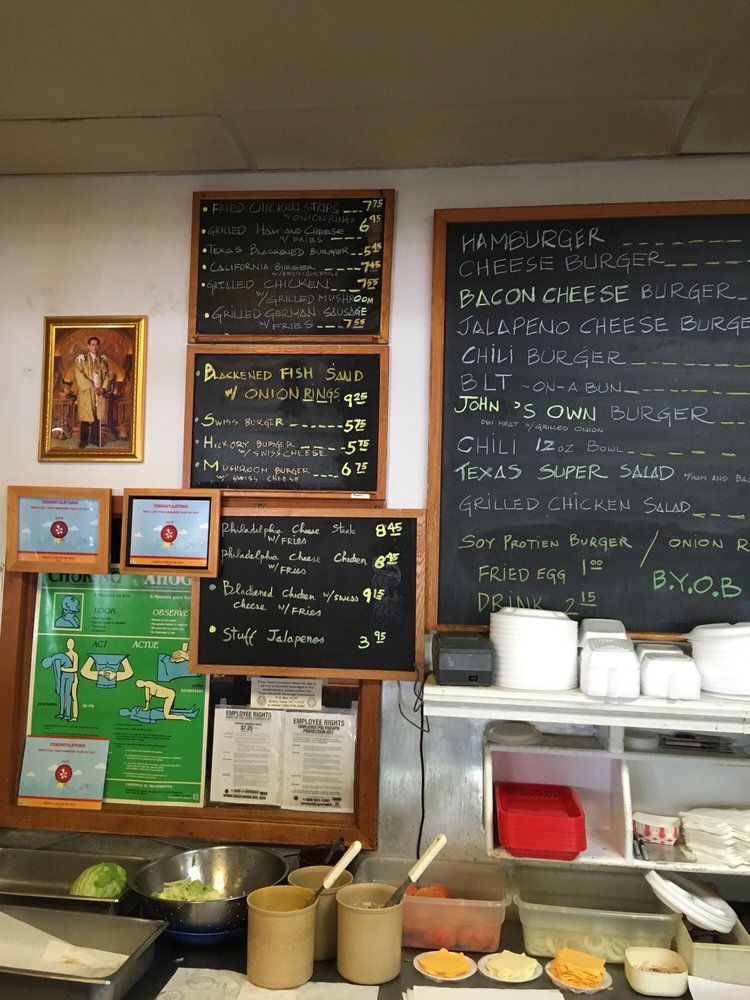 FRIED CHICKEN STRIPS ---- 7.75
W/ONION RINGS
GRILLED HAM AND CHEESE 6.95
W/ FRIES
TEXAS BLACKENED BURGER -- 5.45
CALIFORNIA BURGER ---- 7.45
GRILLED CHICKEN ---- 7.55
W/GRILLED MUSHROOM
GRILLED GERMAN SAUSAGE
W/FRIES ---- 7.55
BLACKENED FISH SAND
W/ ONION RINGS 9.25
SWISS BURGER ---- 5.75
HICKORY BURGER ---- 5.75
W/SWISS CHEESE
MUSHROOM BURGER -- 6.75
W/ SWISS CHEESE
Philadelphia Cheese Steak 8.45
W/FRIES
Philadelphia Cheese Chicken
W/FRIES
Blackened Chicken w/swiss 9.15
cheese w/Fries
Stuff Jalapenos 3.95
HAMBURGER
CHEESE BURGER
BACON CHEESE BURGER
JALAPENO CHEESE BURGE
CHILI BURGER
BLT -ON-A BUN
JOHN'S OWN BURGER
W/GRILLED ONION
CHILI 12 oz BOWL
TEXAS SUPER SALAD W/HAM AND BAC
GRILLED CHICKEN SALAD
SOY PROTIEN BURGER / ONION R
FRIED EGG 1.00
B.Y.O.B
DRINK 2.15
CONGRATULATIONS!
CONGRATULATIONS!
CHOKING
AHOG
LOOK
OBSERVE
ACT
ACTUE
CONGRATULATIONS!
EMPLOYEE RIGHTS
$7.25
EMPLOYEE RIGHTS
EMPLOYEE POLYGRAPH
PROTECTION ACT